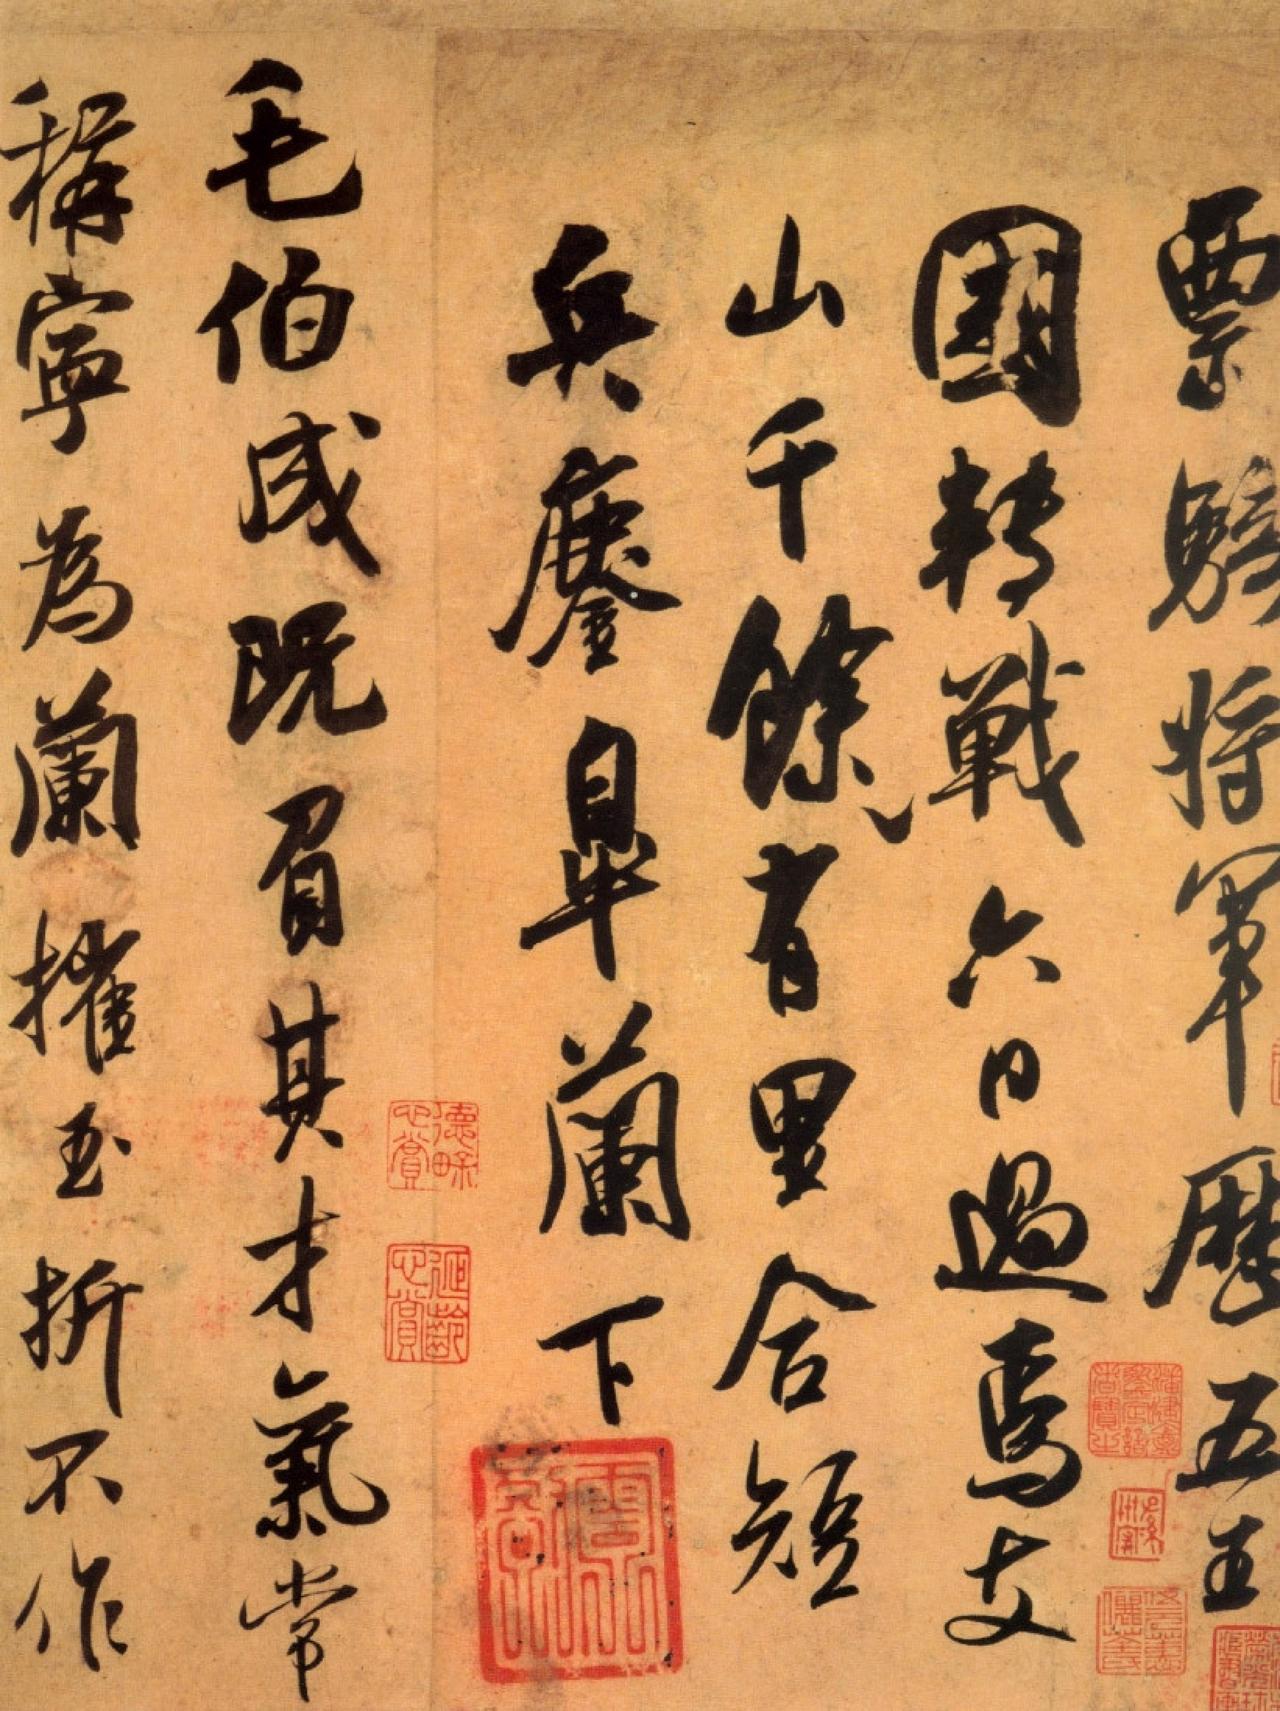 票騎將軍歷五王
國轉戰六日過焉支
山千餘有里合短
兵鏖皋蘭下
毛伯成既負其才氣常
稱寧為蘭摧玉折不作
德畬心賞
延齡心賞